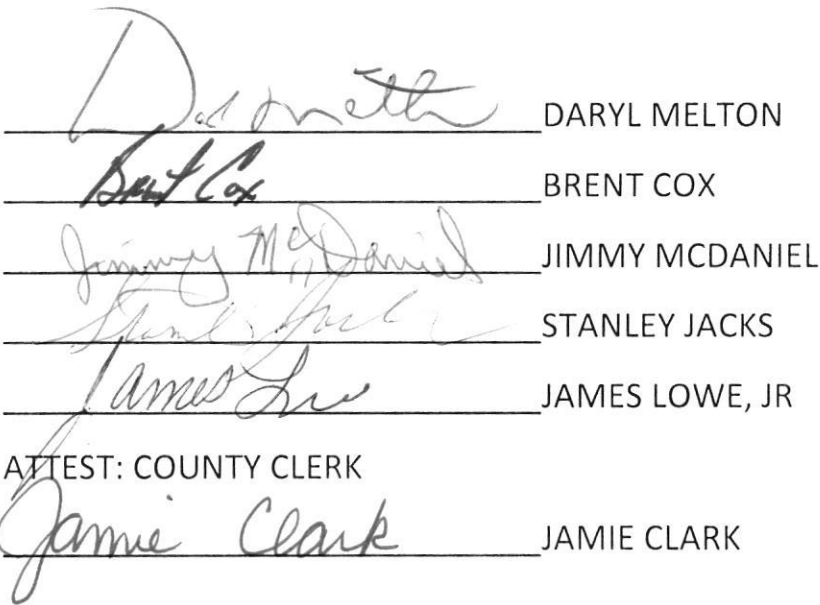 Daryl Melton DARYL MELTON
Brent Cox BRENT COX
Jimmy McDaniel JIMMY MCDANIEL
Stanley Jacks STANLEY JACKS
James Lowe JAMES LOWE, JR
ATTEST: COUNTY CLERK
Jamie Clark JAMIE CLARK